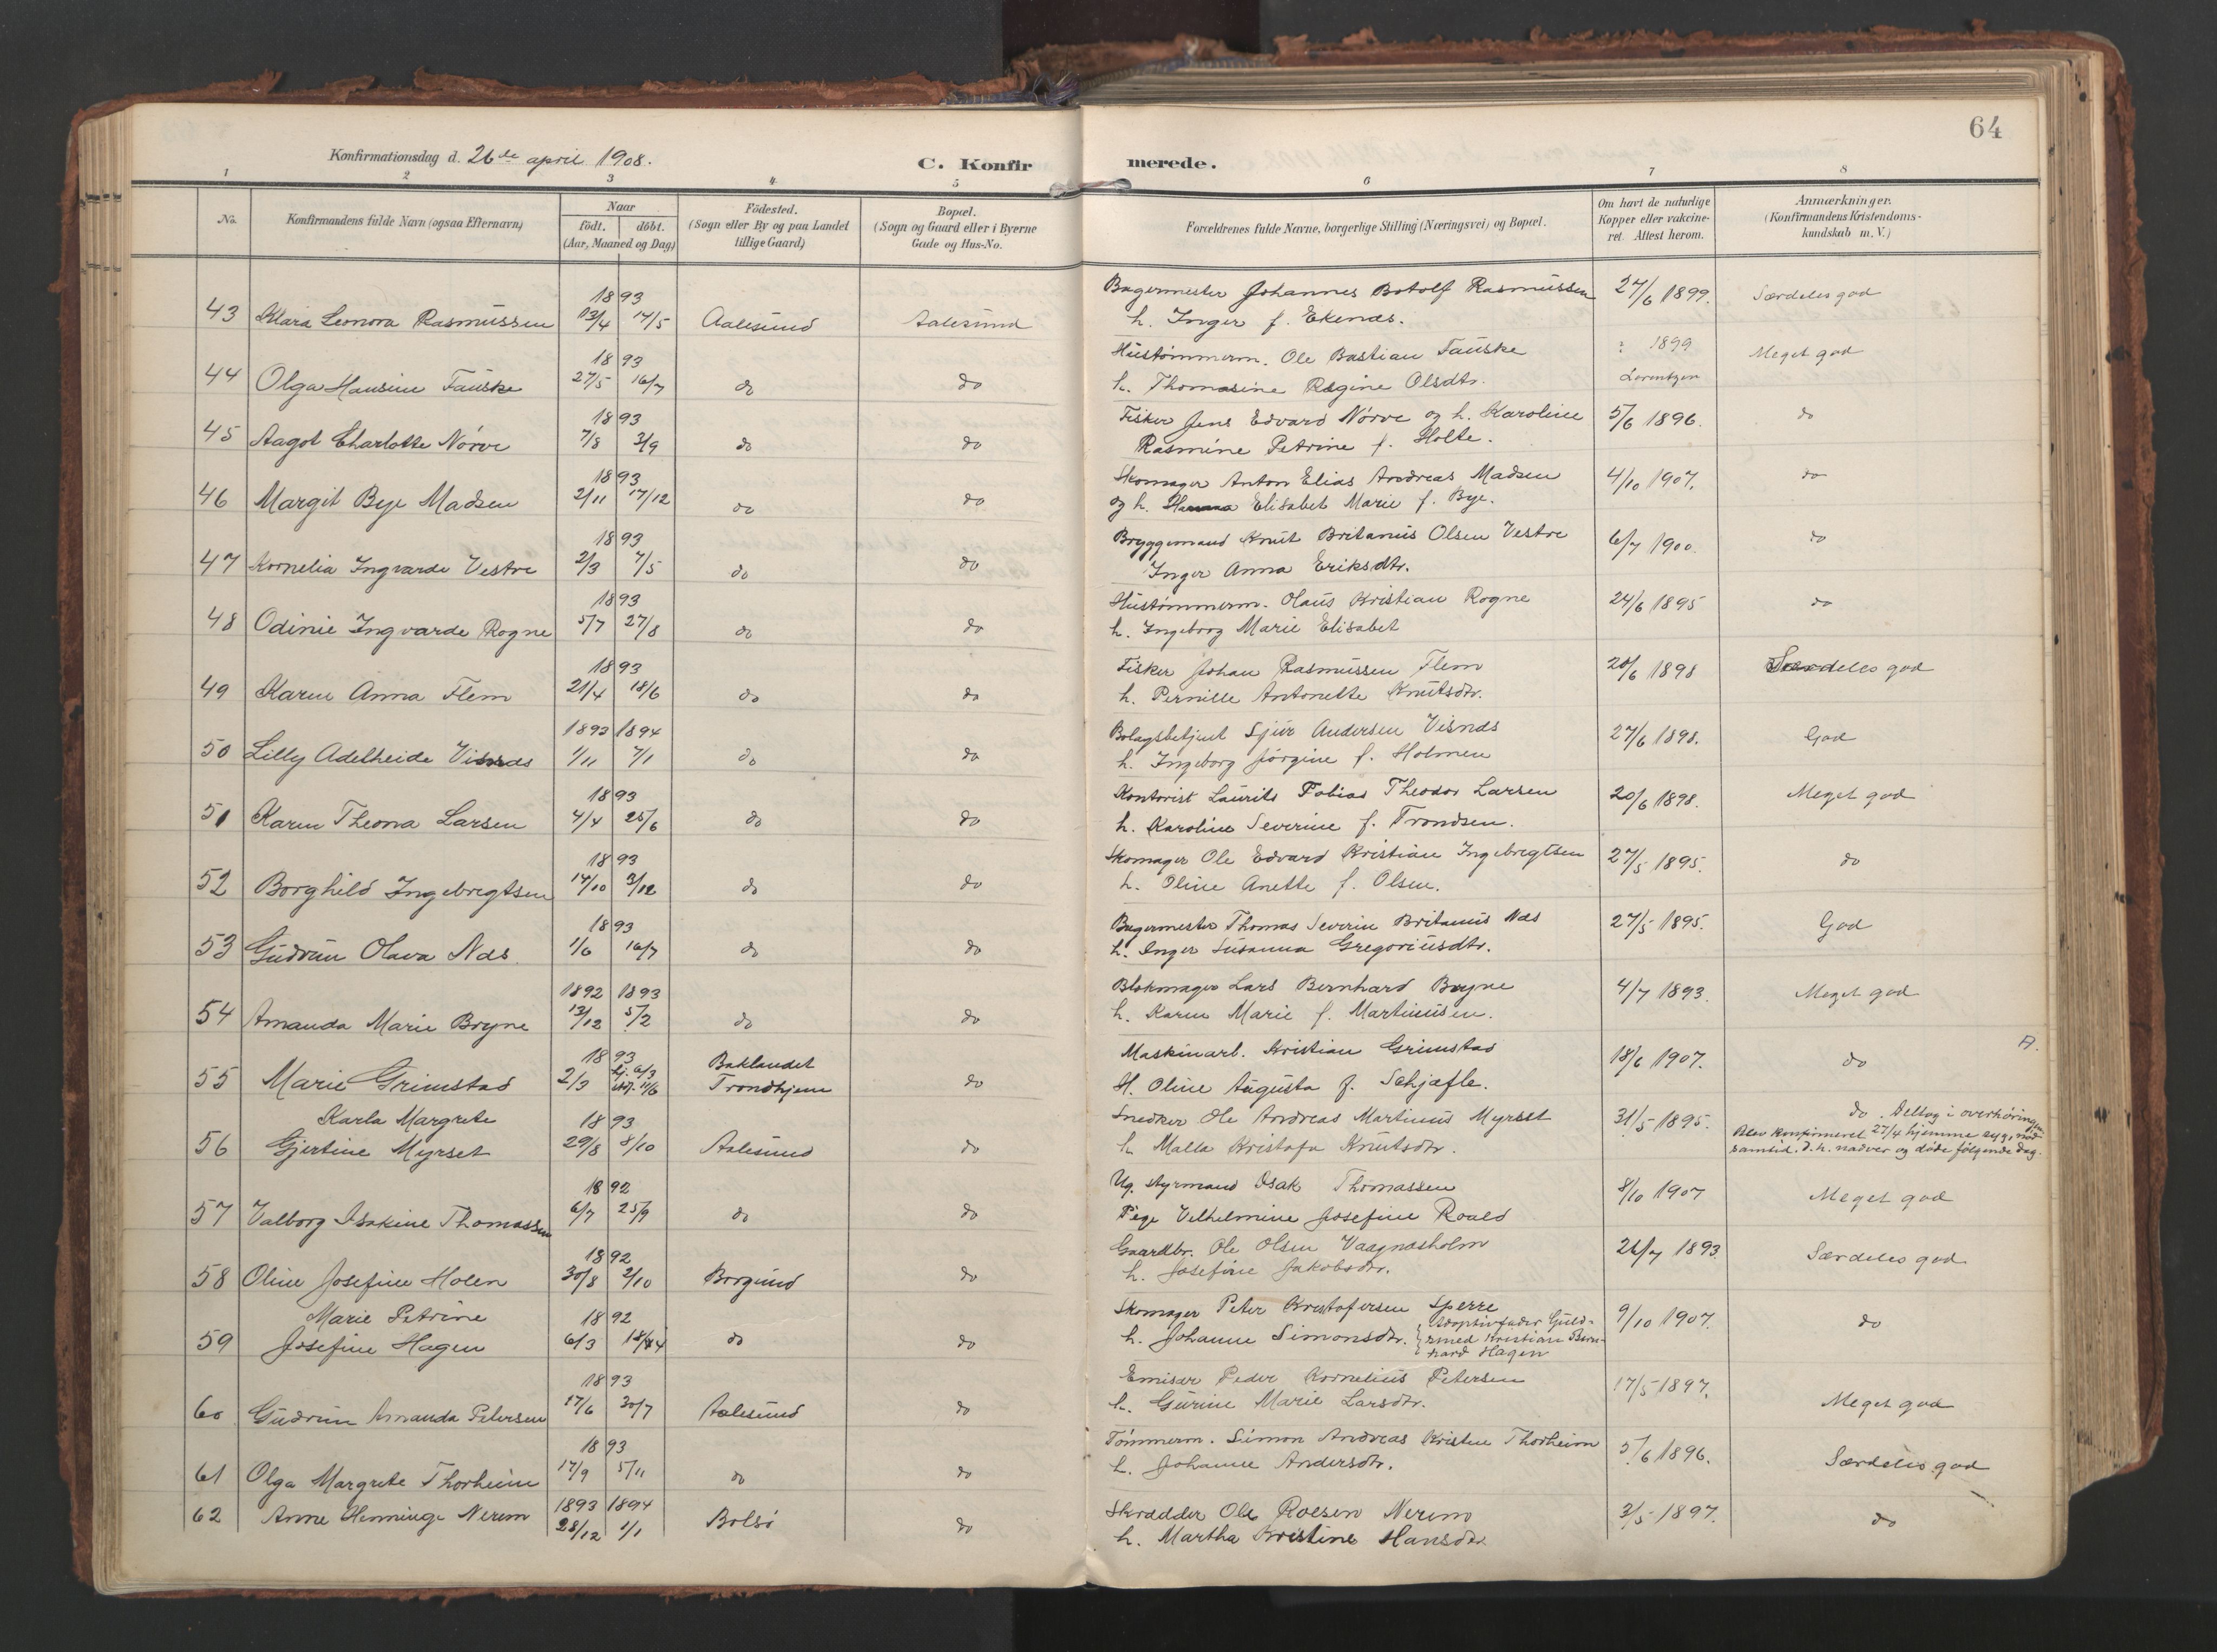 64
Konfirmationsdag d. 26de april 1908.
C. Konfirmerede.
1 2 3 4 5 6 7 8
No. Konfirmandens fulde Navn (ogsaa Efternavn) Naar født. døbt. (Aar, Maaned og Dag) Födested. (Sogn eller By og paa Landet tillige Gaard) Bopæl. (Sogn og Gaard eller i Byerne Gade og Hus-No. Forældrenes fulde Navne, borgerlige Stilling (Næringsvei) og Bopæl. Om havt de naturlige Kopper eller vakcineret. Attest herom. Anmærkninger. (Konfirmandens Kristendomskundskab m. V.)
1893 Bagermester Johannes Botolf Rasmussen 27/6 1899. Særdeles god
43 Klara Leonora Rasmussen 13/4 14/5 Aalesund Aalesund h. Inger f. Ekenæs.
1893 Hustømmerm. Ole Bastian Fauske ? 1899 Meget god
44 Olga Hansine Fauske 27/5 16/7 do do h. Thomasine Regine Olsdtr. Lorentzen
1893 Fisker Jens Edvard Nørve og h. Karoline 5/6 1896. do
45 Aagot Charlotte Nørve 7/8 3/9 do do Rasmine Petrine f. Holte.
1893 Skomager Anton Elias Andreas Madsen 4/10 1907. do
46 Margit Bye Madsen 2/11 17/12 do do og h. Elisabet Marie f. Bye.
1893 Bryggemand Knut Britanus Olsen Vestre 6/7 1900. do
47 Kornelia Ingvarda Vestre 2/3 7/5 do do Inger Anna Eriksdtr.
1893 Hustømmerm. Olaus Kristian Rogne 24/6 1895 do
48 Odinie Ingvarda Rogne 5/7 27/8 do do h. Ingeborg Marie Elisabet
1893 Fisker Johan Rasmussen Flem 28/6 1898 Særdeles god
49 Karen Anna Flem 21/4 18/6 do do h. Pernille Antonette Knutsdtr.
1893 1894 Bolagsbetjent Sjur Andersen Visnæs 27/6 1898. God
50 Lilly Adelheide Visnæs 1/11 7/1 do do h. Ingeborg Jørgine f. Holmen
1893 Kontorist Laurits Tobias Theodor Larsen 20/6 1898. Meget god
51 Karen Theona Larsen 4/4 25/6 do do h. Karoline Severine f. Trondsen.
1893 Skomager Ole Edvard Kristian Ingebregtsen 27/5 1895. do
52 Borghild Ingebregtsen 14/10 3/12 do do h. Oline Anette f. Olsen.
1893 Bagermester Thomas Severin Britanus Næs 27/5 1895. God
53 Gudrun Olava Næs. 1/6 16/7 do do h. Inger Susanna Gregoriusdtr.
1892 1893 Blokmager Lars Bernhard Bryne 4/7 1893. Meget god
54 Amanda Marie Bryne 13/12 5/2 do do h. Karen Marie f. Martinusen.
1893 Baklandet Maskinarb. Kristian Grimstad 18/6 1907. do A.
55 Marie Grimstad 2/3 hj. 6/3 st. 11/6 Trondhjem do H. Oline Augusta f. Schjefle.
Karla Margrete 1893 Snedker Ole Andreas Martinus Myrset 31/5 1895. do. Deltog i overhøringen
56 Gjertine Myrset 29/8 8/10 Aalesund do h. Malla Kristofa Knutsdtr. Blev konfirmeret 27/4 hjemme syg, nød
samtid. d. h. nadver og døde følgende dag.
1892 Ug. styrmand Isak Thomassen 8/10 1907 Meget god
57 Valborg Isakine Thomassen 6/7 25/9 do do Pige Vilhelmine Josefine Roald
1892 Gaardbr. Ole Olsen Vaagnæsholm 26/7 1893. Særdeles god
58 Oline Josefine Holen 30/8 2/10 Borgund do h. Josefine Jakobsdtr.
Marie Petrine 1892 Skomager Peter Kristofersen Sperre 9/10 1907. do
59 Josefine Hagen 6/3 18/4 do do h. Johanne Simonsdtr. Adoptivfader Guldsmed Kristian Bernhard Hagen
1893 Emisær Peder Kornelius Petersen 17/5 1897.
60 Gudrun Amanda Petersen 17/6 30/7 Aalesund do h. Gurine Marie Larsdtr. Meget god
1893 Tømmerm. Simon Andreas Kristen Thorheim 5/6 1896.
61 Olga Margrete Thorheim 17/9 5/11 do do h. Johanne Andersdtr. Særdeles god
1893 1894
62 Anne Henninge Nerem 28/12 1/1 Bolsø do Skrædder Ole Roesen Nerem 3/5 1897. do
h. Martha Kristine Hansdtr